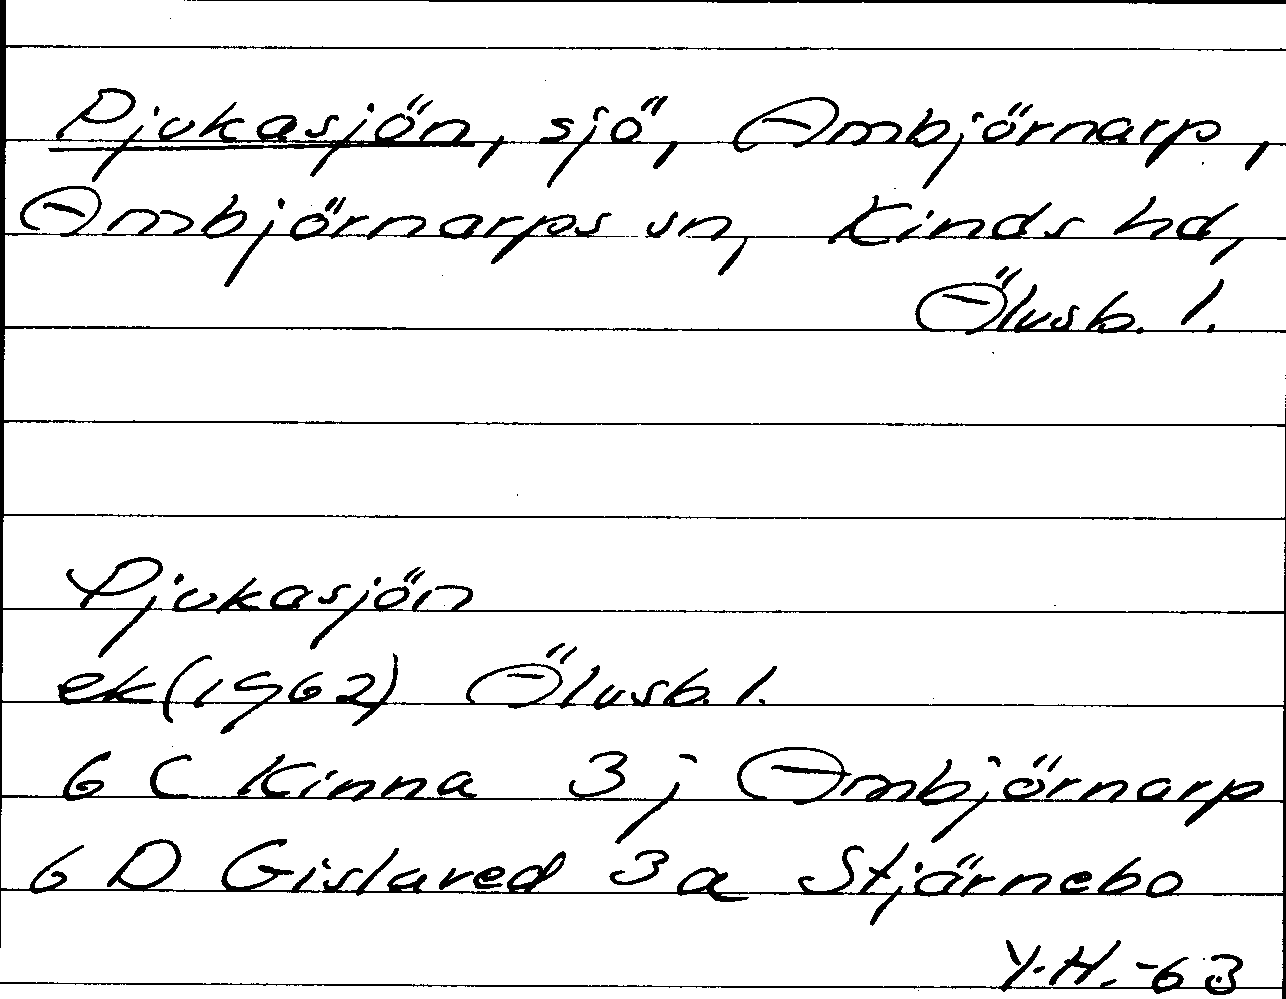 Pjukasjön, sjö, Ambjörnarp,
Ambjörnarps sn, Kinds hd,
Älvsb. l.
Pjukasjön
ek (1962) Älvsb. l.
6 C Kinna 3 j Ambjörnarp
6 D Gislaved 3 a Stjärnebo
Y.H. -63